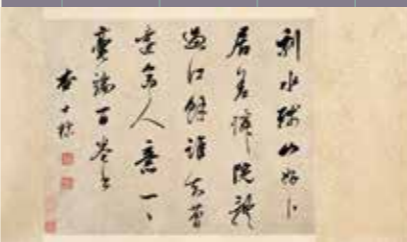 剩水殘山好卜
居差憐院體
過江餘誰知簡
遠高人意一〻
毫端百卷書
查士標